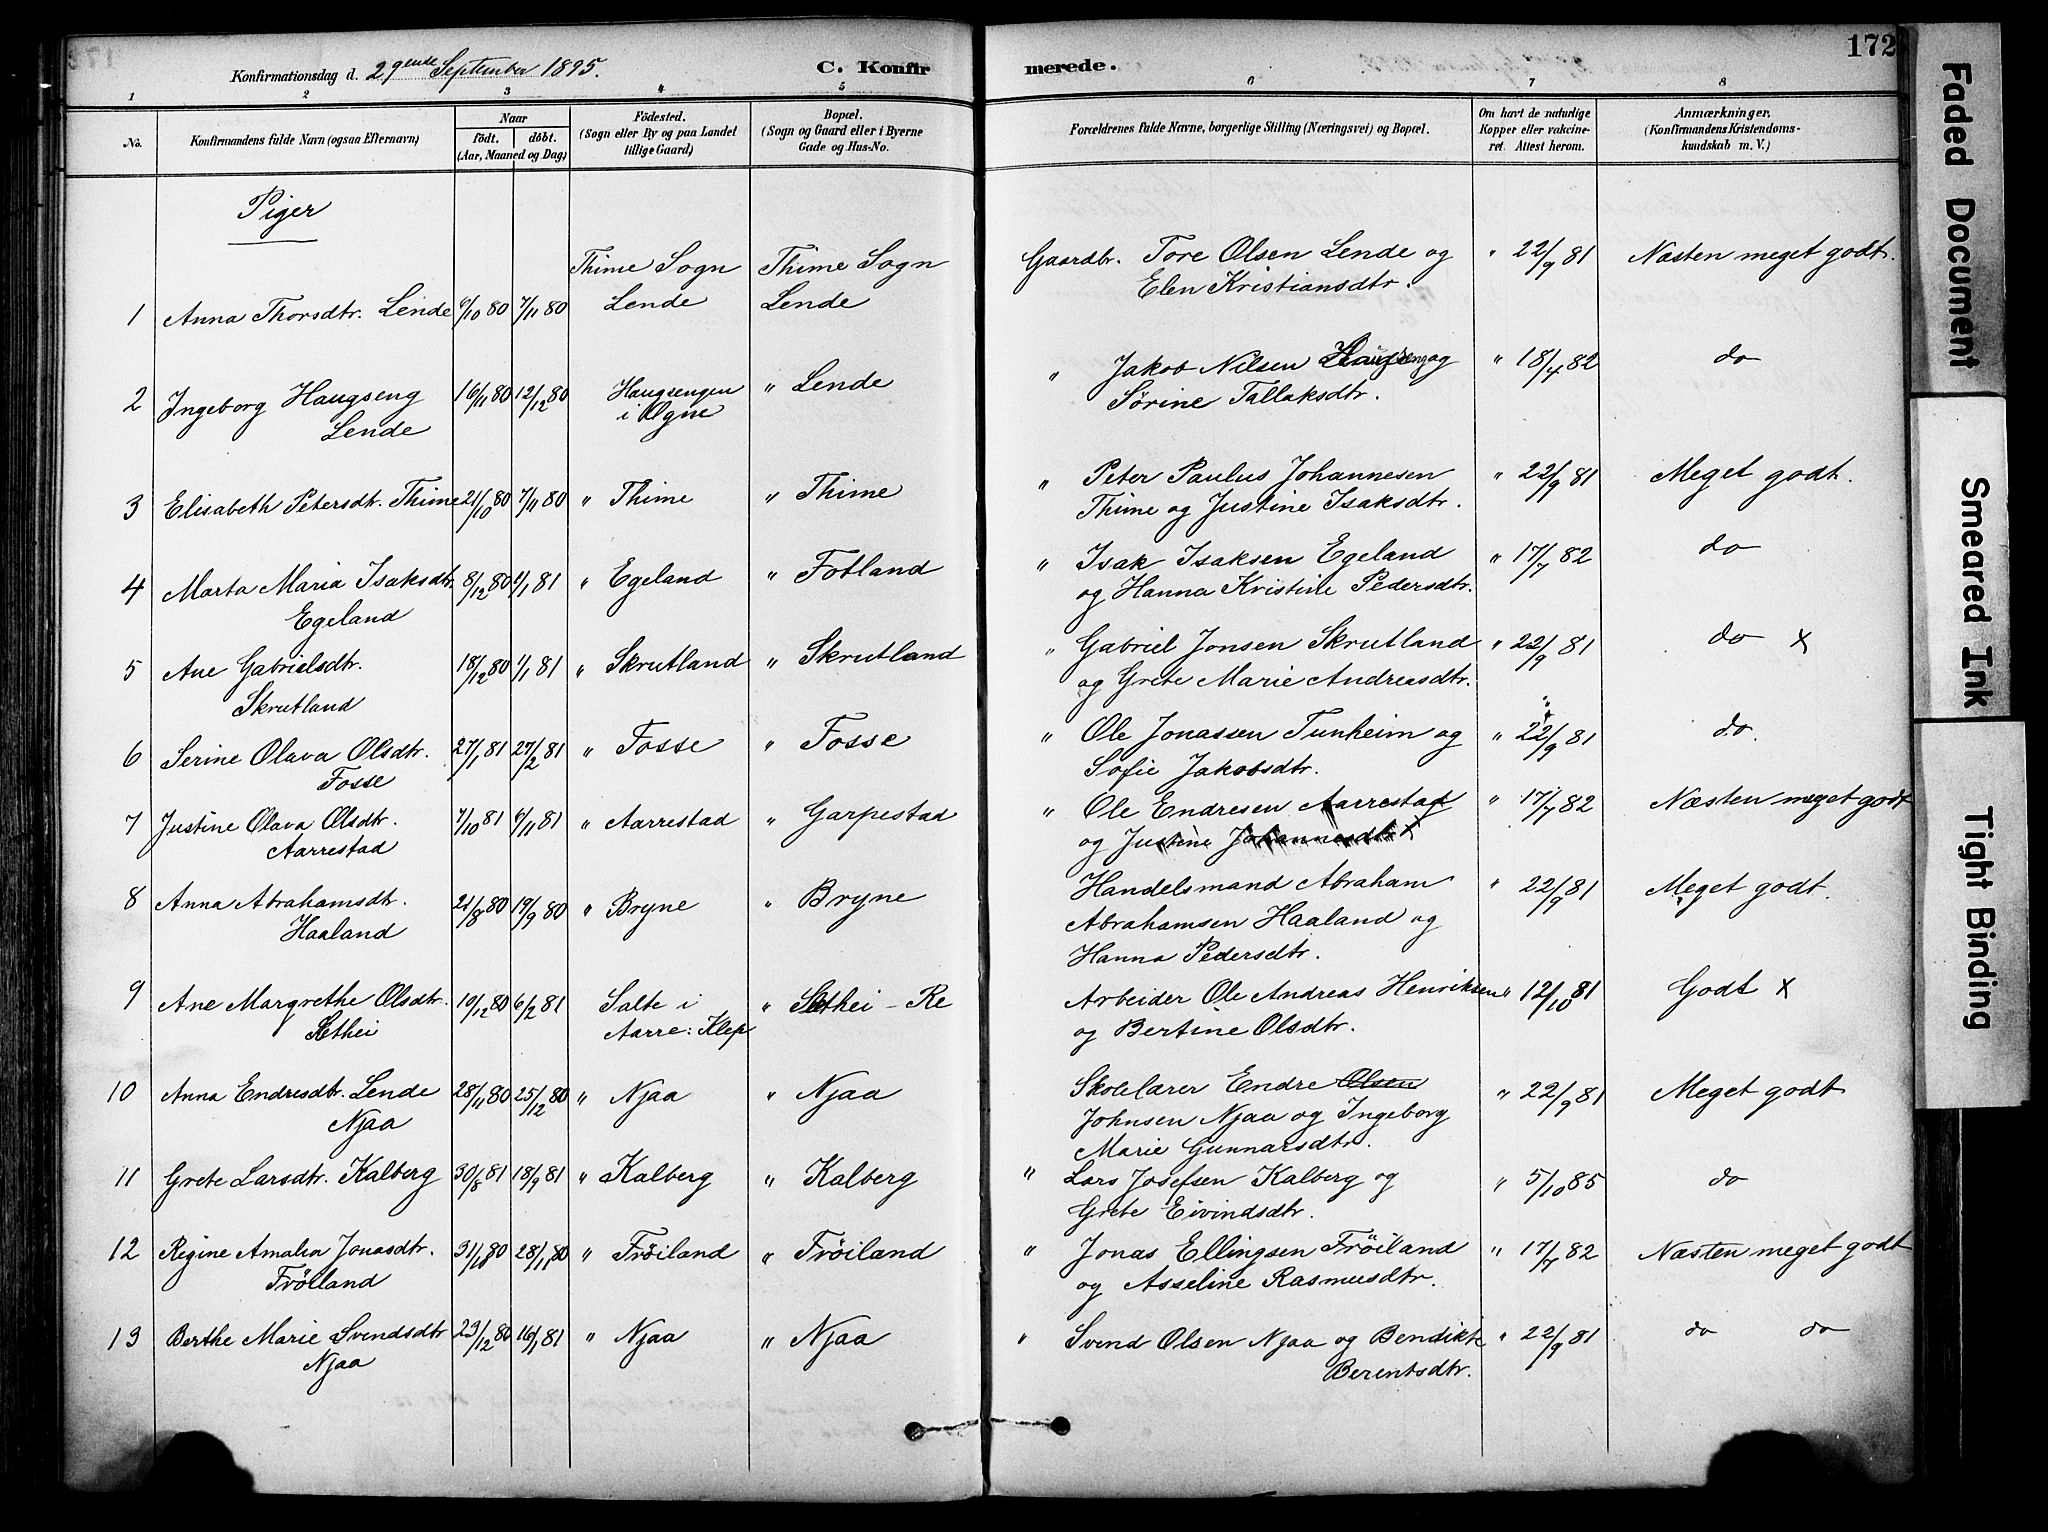 172
Konfirmationsdag d. 29ende September 1895.
C. Konfirmerede.
1 2 3 4 5 6 7 8
No.
Konfirmandens fulde Navn (ogsaa Efternavn)
Naar
födt. döbt.
(Aar, Maaned og Dag)
Födested.
(Sogn eller By og paa Landet
tillige Gaard)
Bopæl.
(Sogn og Gaard eller i Byerne
Gade og Hus-No.
Forældrenes fulde Navne, borgerlige Stilling (Næringsvei) og Bopæl.
Om havt de naturlige
Kopper eller vakcine-
ret. Attest herom.
Anmærkninger.
(Konfirmandens Kristendoms-
kundskab m. V.)
Piger
Thime Sogn Thime Sogn Gaardbr. Tore Olsen Lende og " 22/9 81 Næsten meget godt.
1 Anna Thorsdtr. Lende 6/10 80 7/11 80 Lende Lende Elen Kristiansdtr.
2 Ingeborg Haugseng 16/11 80 12/12 80 Haugsengen " Lende " Jakob Nilsen Haugseng og " 18/4 82 do
Lende i Ogne Sørine Tallaksdtr.
3 Elisabeth Petersdtr. Thime 21/10 80 7/11 80 " Thime " Thime " Peter Paulus Johannesen " 22/9 81 Meget godt.
Thime og Justine Isaksdtr.
4 Marta Maria Isaksdtr. 8/12 80 2/1 81 " Egeland " Fotland " Isak Isaksen Egeland " 17/7 82 do
Egeland og Hanna Kristine Pedersdtr.
5 Ane Gabrielsdtr. 18/12 80 1/1 81 " Skrutland " Skrutland " Gabriel Jonsen Skrutland " 22/9 81 do x
Skrutland og Grete Marie Andreasdtr.
6 Serine Olava Olsdtr. 27/1 81 27/2 81 " Fosse " Fosse " Ole Jonassen Tunheim og " 22/9 81 do.
Fosse Sofie Jakobsdtr.
7 Justine Olava Olsdtr. 7/10 81 6/11 81 " Aarrestad " Garpestad " Ole Endresen Aarrestad " 17/7 82 Næsten meget godt
Aarrestad og Justine Johannesdtr x
8 Anna Abrahamsdtr. 21/8 80 19/9 80 " Bryne " Bryne Handelsmand Abraham " 22/9 81 Meget godt.
Haaland Abrahamsen Haaland og
Hanna Pedersdtr.
9 Ane Margrethe Olsdtr. 10/12 80 6/2 81 Salte i " Sethei - Re Arbeider Ole Andreas Henriksen " 12/10 81 Godt x
Sethei Aarre: Klep og Bertine Olsdtr.
10 Anna Endresdtr. Lende 28/11 80 25/12 80 " Njaa " Njaa Skolelærer Endre Olsen " 22/9 81 Meget godt
Njaa Johnsen Njaa og Ingeborg
Marie Gunnarsdtr.
11 Grete Larsdtr. Kalberg 30/8 81 18/9 81 " Kalberg " Kalberg " Lars Josefsen Kalberg og " 5/10 85 do
Grete Eivindsdtr.
12 Regine Amalia Jonasdtr. 31/10 80 28/11 80 " Frøiland " Frøiland " Jonas Ellingsen Frøiland " 17/7 82 Næsten meget godt
Frøiland og Asseline Rasmusdtr.
13 Berthe Marie Svendsdtr 23/12 80 16/1 81 " Njaa " Njaa " Svend Olsen Njaa og Bendikte " 22/9 81 do do
Njaa Berentsdtr.
Faded Document
Smeared Ink
Tight Binding